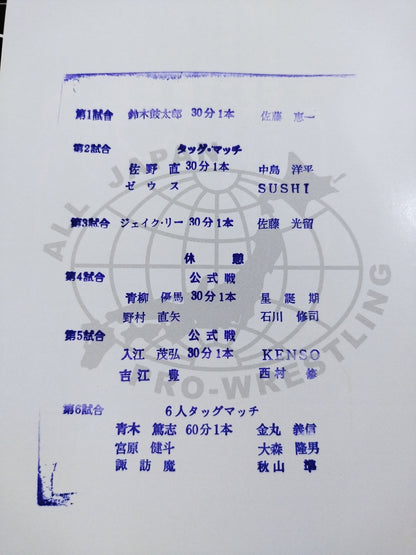 第1試合 鈴木鼓太郎 30分1本 佐藤 恵一
第2試合 タッグ・マッチ
佐野 直 30分1本 中島 洋平
ゼウス SUSHI
第3試合 ジェイク・リー 30分1本 佐藤 光留
休 憩
第4試合 公式戦
青柳 優馬 30分1本 星 誕期
野村 直矢 石川 修司
第5試合 公式戦
入江 茂弘 30分1本 KENSO
吉江 豊 西村 修
第6試合 6人タッグマッチ
青木 篤志 60分1本 金丸 義信
宮原 健斗 大森 隆男
諏訪魔 秋山 準
ALL JAPAN
PRO-WRESTLING